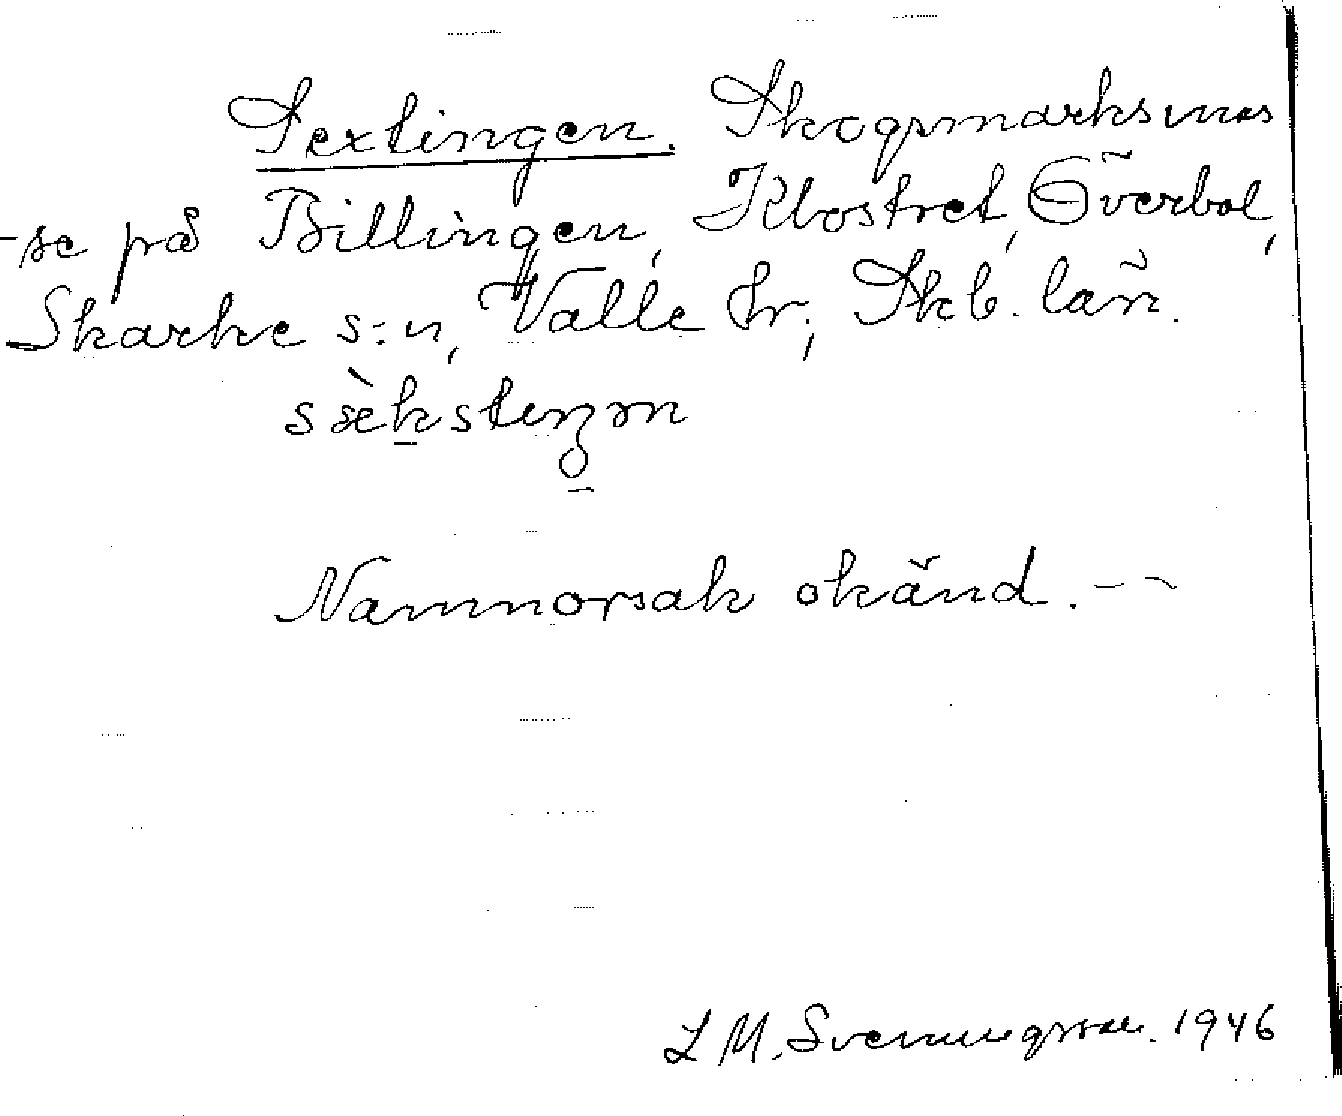 Sextingen. Skogsmarksnäs
-se på Billingen, Klostret, Överbol,
Skarke s:n, Valle hr; Skb. län.
Namnorsak okänd. --
L M. Svenungsson. 1946